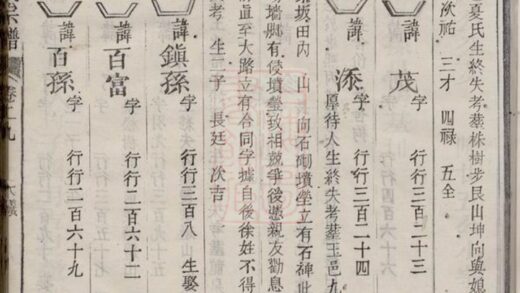 夏氏生終失考葬株樹步艮山坤向與娘
次祐 三才 四祿 五全
諱茂 字 行行三百二十三
諱添 字 行行三百二十四
厚待人生終失考葬王邑九
坂田内 山 向石砌墳塋立有石碑此
墙脚有侵墳塋致相競爭後憑親友勸息
直至大路立有合同字據自後徐姓不得
考 生二子 長廷 次吉
諱鎮孫 字 行行三百八 生娶
諱百富 字 行行二百六十二
諱百孫 字 行行二百六十九
宗譜 卷十九